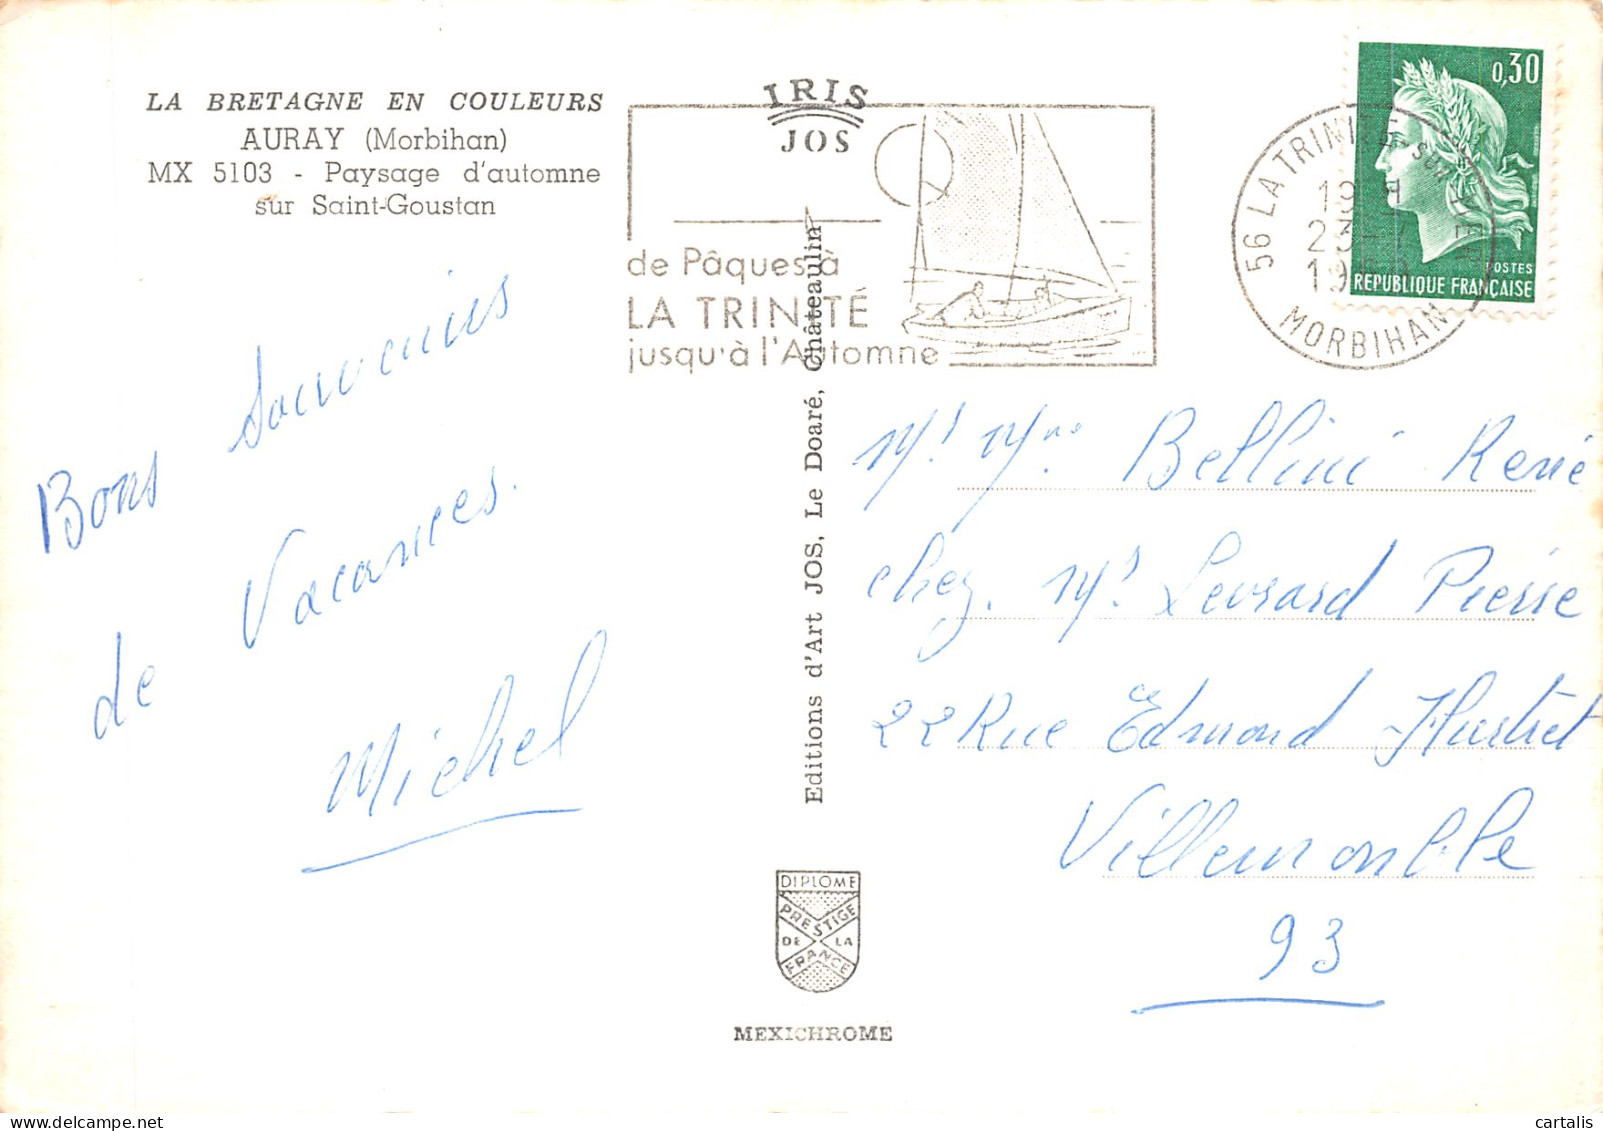 LA BRETAGNE EN COULEURS
AURAY (Morbihan)
MX 5103 - Paysage d'automne
sur Saint-Goustan
IRIS
JOS
de Pâques à
LA TRINITÉ
jusqu'à l'Automne
56 LA TRINITE-SUR-MER
MORBIHAN
0,30
POSTES
REPUBLIQUE FRANÇAISE
Bons Souvenirs
de Vacances.
Michel
Editions d'Art JOS, Le Doaré, Châteaulin
Mr Mme Bellini René
chez. Mr Levrard Pierre
22 Rue Edmond
Villemomble
93
DIPLOME
PRESTIGE
DE LA
FRANCE
MEXICHROME
© cartalis
cartalis.delcampe.net